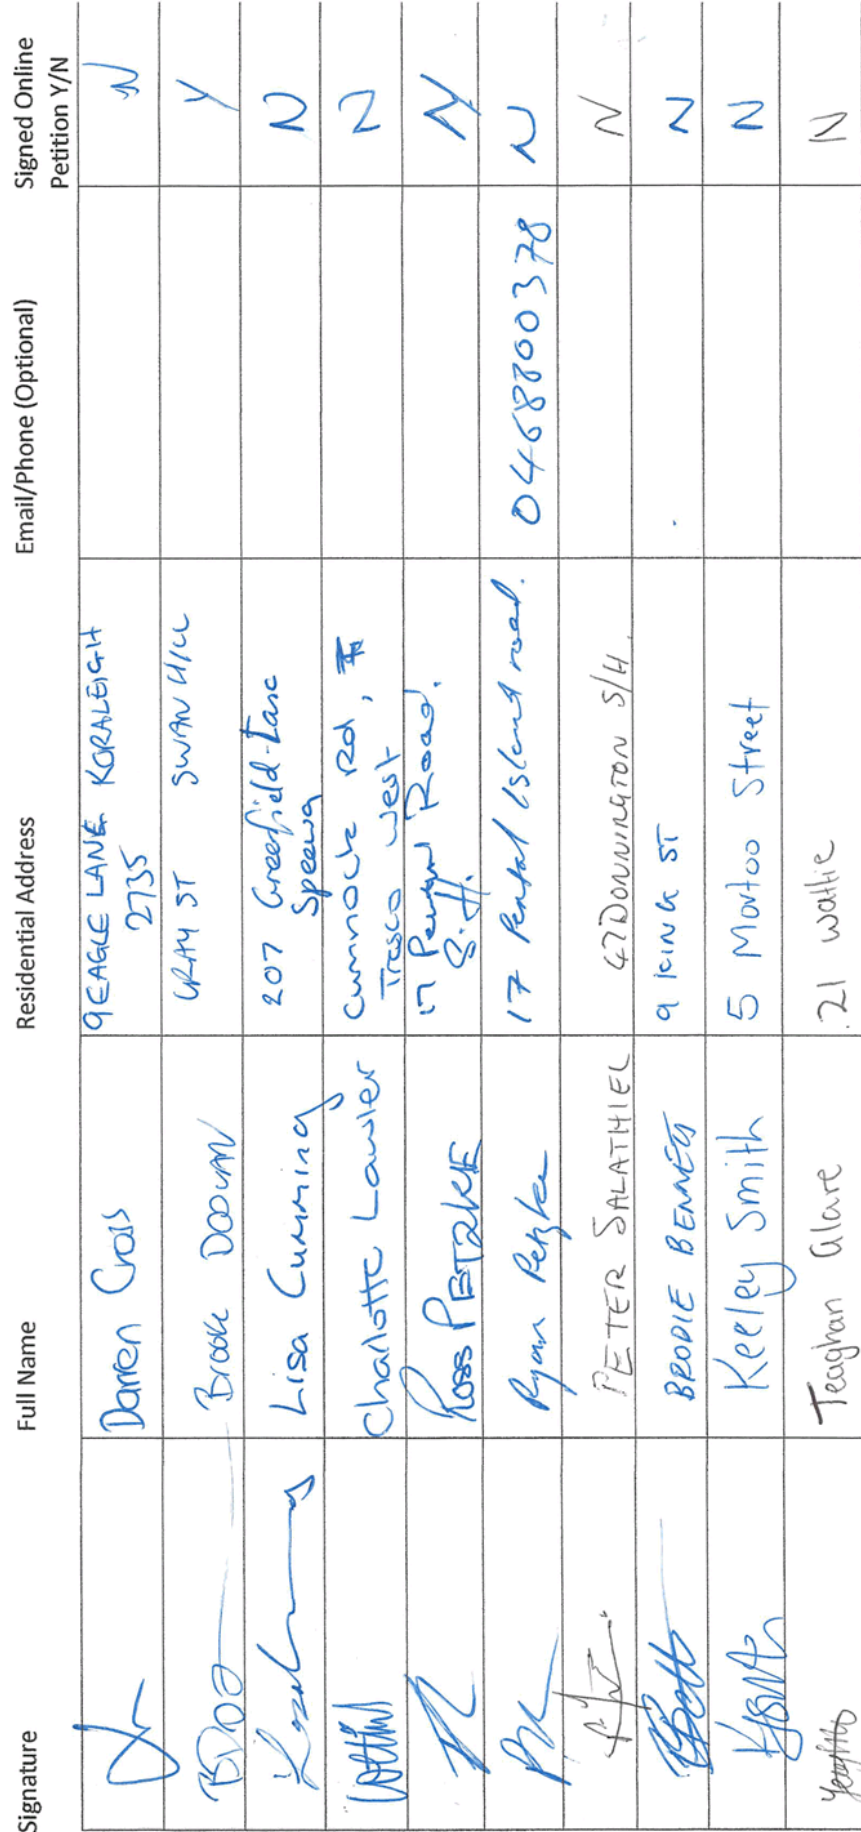 Signature Full Name Residential Address Email/Phone (Optional) Signed Online
Petition Y/N
Darren Cross 9 EAGLE LANE KORALEIGH N
2735
Brooke GRAY ST SWAN HILL Y
Lisa Cumming 207 Greenfield Lane N
Speewa
Charlotte Lawler Cumnock rd, N
Tresco West
Ross PETZKE 17 Road. N
S.H.
Ryan Petzke 17 Pental Island road. 0468800378 N
PETER SALATHIEL 47 DONNINGTON S/H. N
BRODIE BENNETT 9 KING ST N
Keeley Smith 5 Street N
Teaghan 21 wattie N